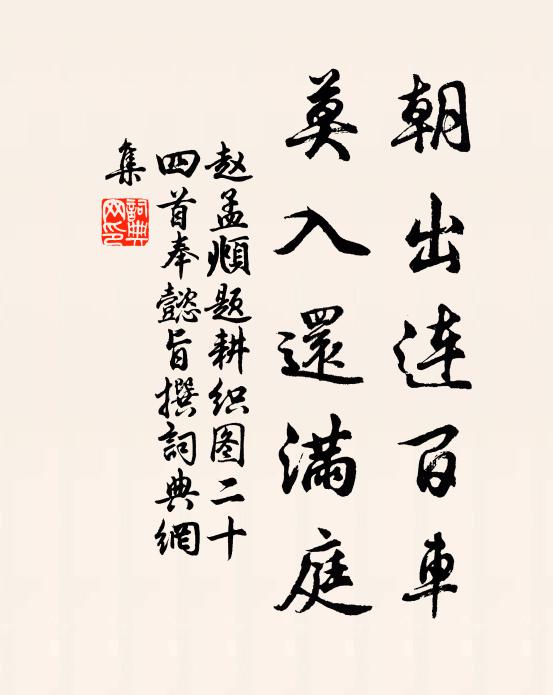 朝出连百车
莫入還满庭
赵孟頫题耕织图二十
四首奉懿旨撰詞典網
集
詞典網印